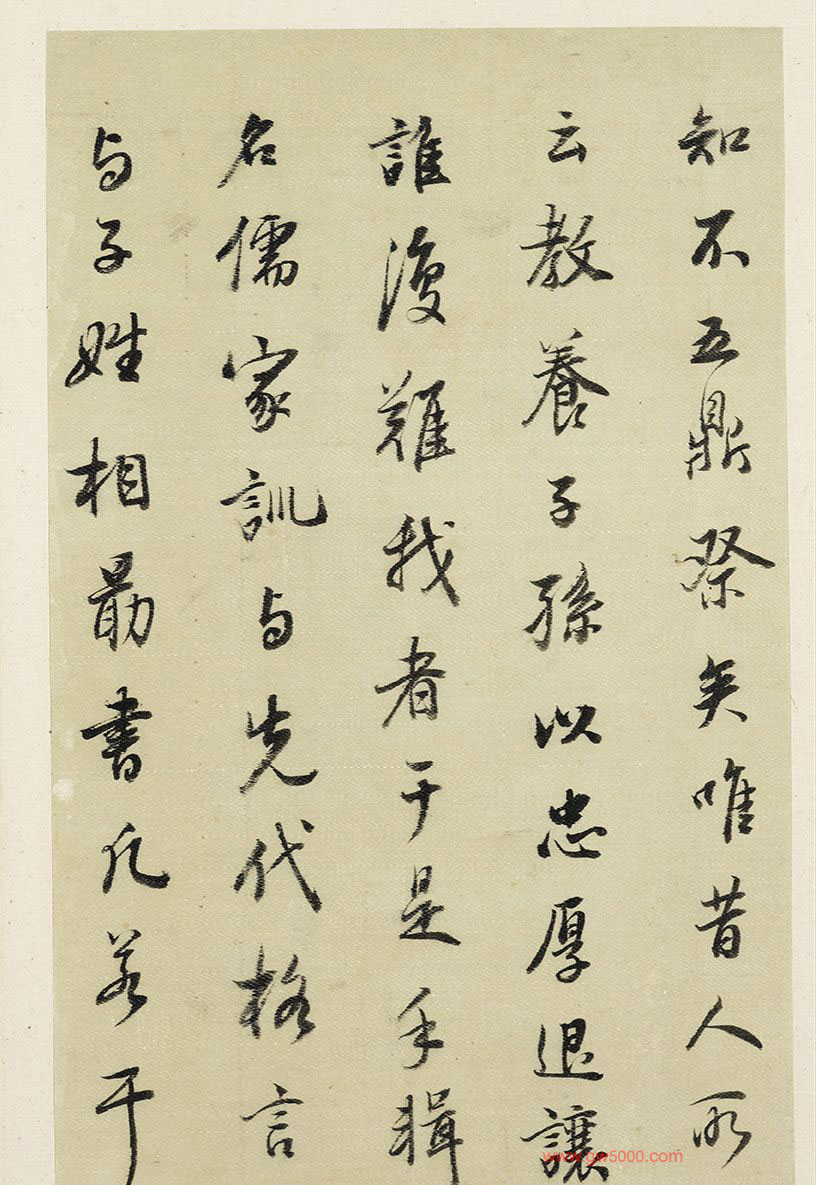 知不五鼎祭矣唯昔人所
云教養子孫以忠厚退讓
誰復難我者于是手輯
名儒家訓与先代格言
与子姓相勗書凡若干
www.gw5000.com